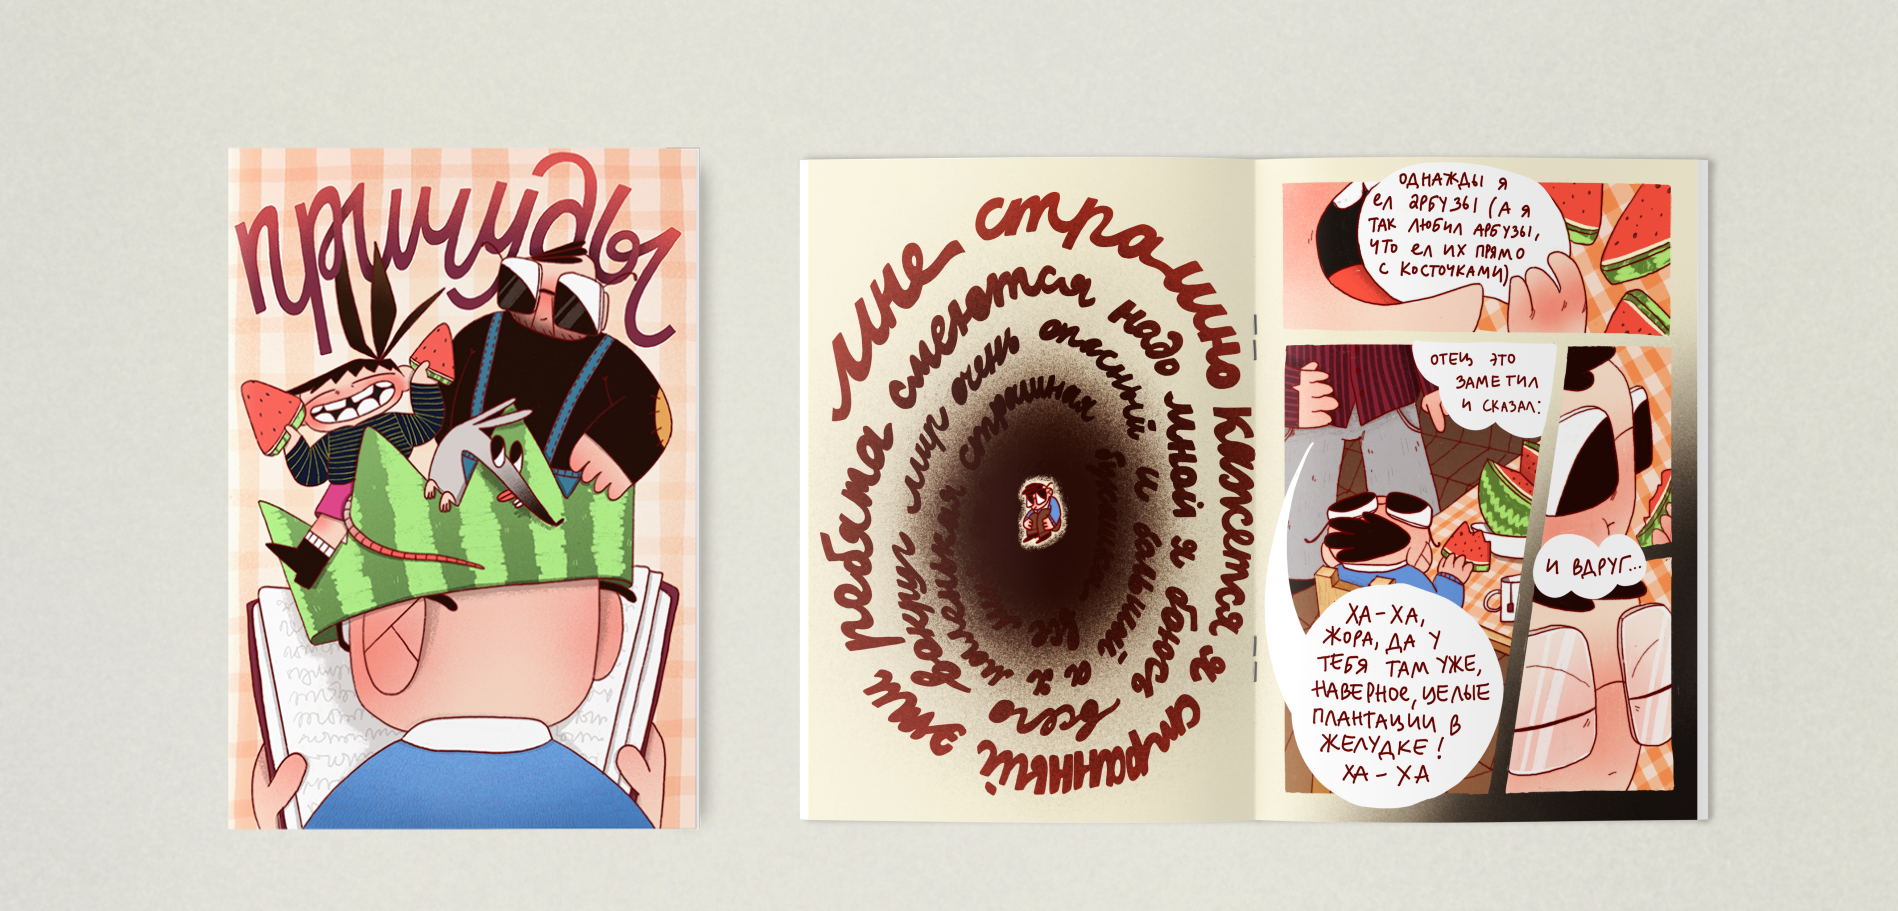 причуды
мне страшно кажется я странный эти
ребята смеются надо мной я боюсь всего
вокруг мир очень опасный и большой а я
маленькая страшная
все
ОДНАЖДЫ Я
ЕЛ АРБУЗЫ (А Я
ТАК ЛЮБИЛ АРБУЗЫ,
ЧТО ЕЛ ИХ ПРЯМО
С КОСТОЧКАМИ)
ОТЕЦ ЭТО
ЗАМЕТИЛ
И СКАЗАЛ:
И ВДРУГ...
ХА-ХА,
ЖОРА, ДА У
ТЕБЯ ТАМ УЖЕ,
НАВЕРНОЕ, ЦЕЛЫЕ
ПЛАНТАЦИИ В
ЖЕЛУДКЕ!
ХА-ХА